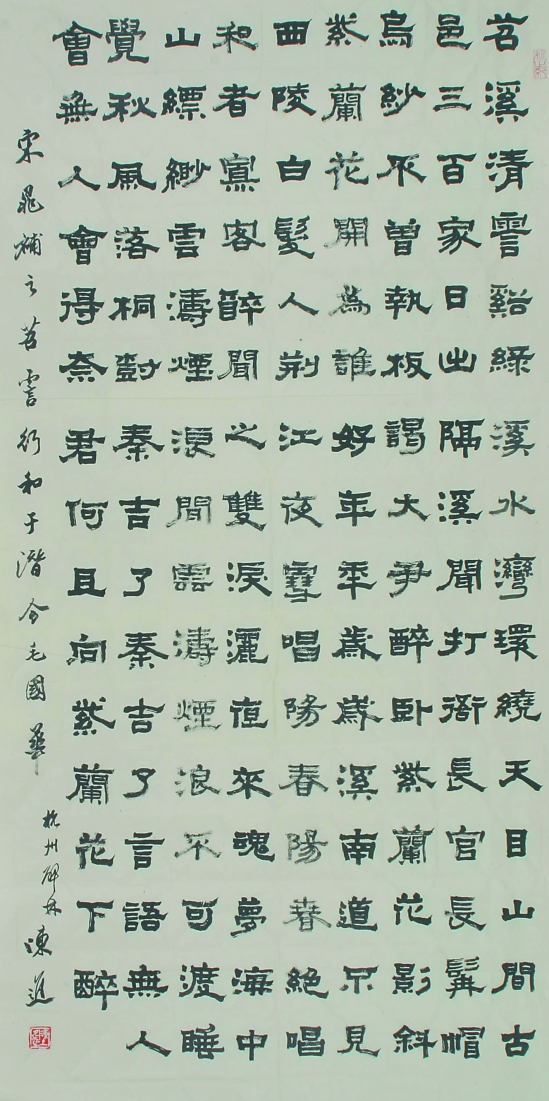 苕溪清霅谿綠溪水灣環繞天目山間古
邑三百家日出隔溪聞打衙長官長髯帽
烏紗不曾執板謁大尹醉臥紫蘭花影斜
紫蘭花開為誰好年年歲歲溪南道不見
西陵白髮人荆江夜雪唱陽春陽春絕唱
和者寡客醉聞之雙淚灑來魂夢海中
山縹緲雲濤煙浪間雲濤煙浪不可渡睡
覺秋風落桐樹秦吉了秦吉了言語無人
會無人會得奈君何且向紫蘭花下醉
宋晁補之苕霅行和于潛令毛國華 杭州碑林陳進